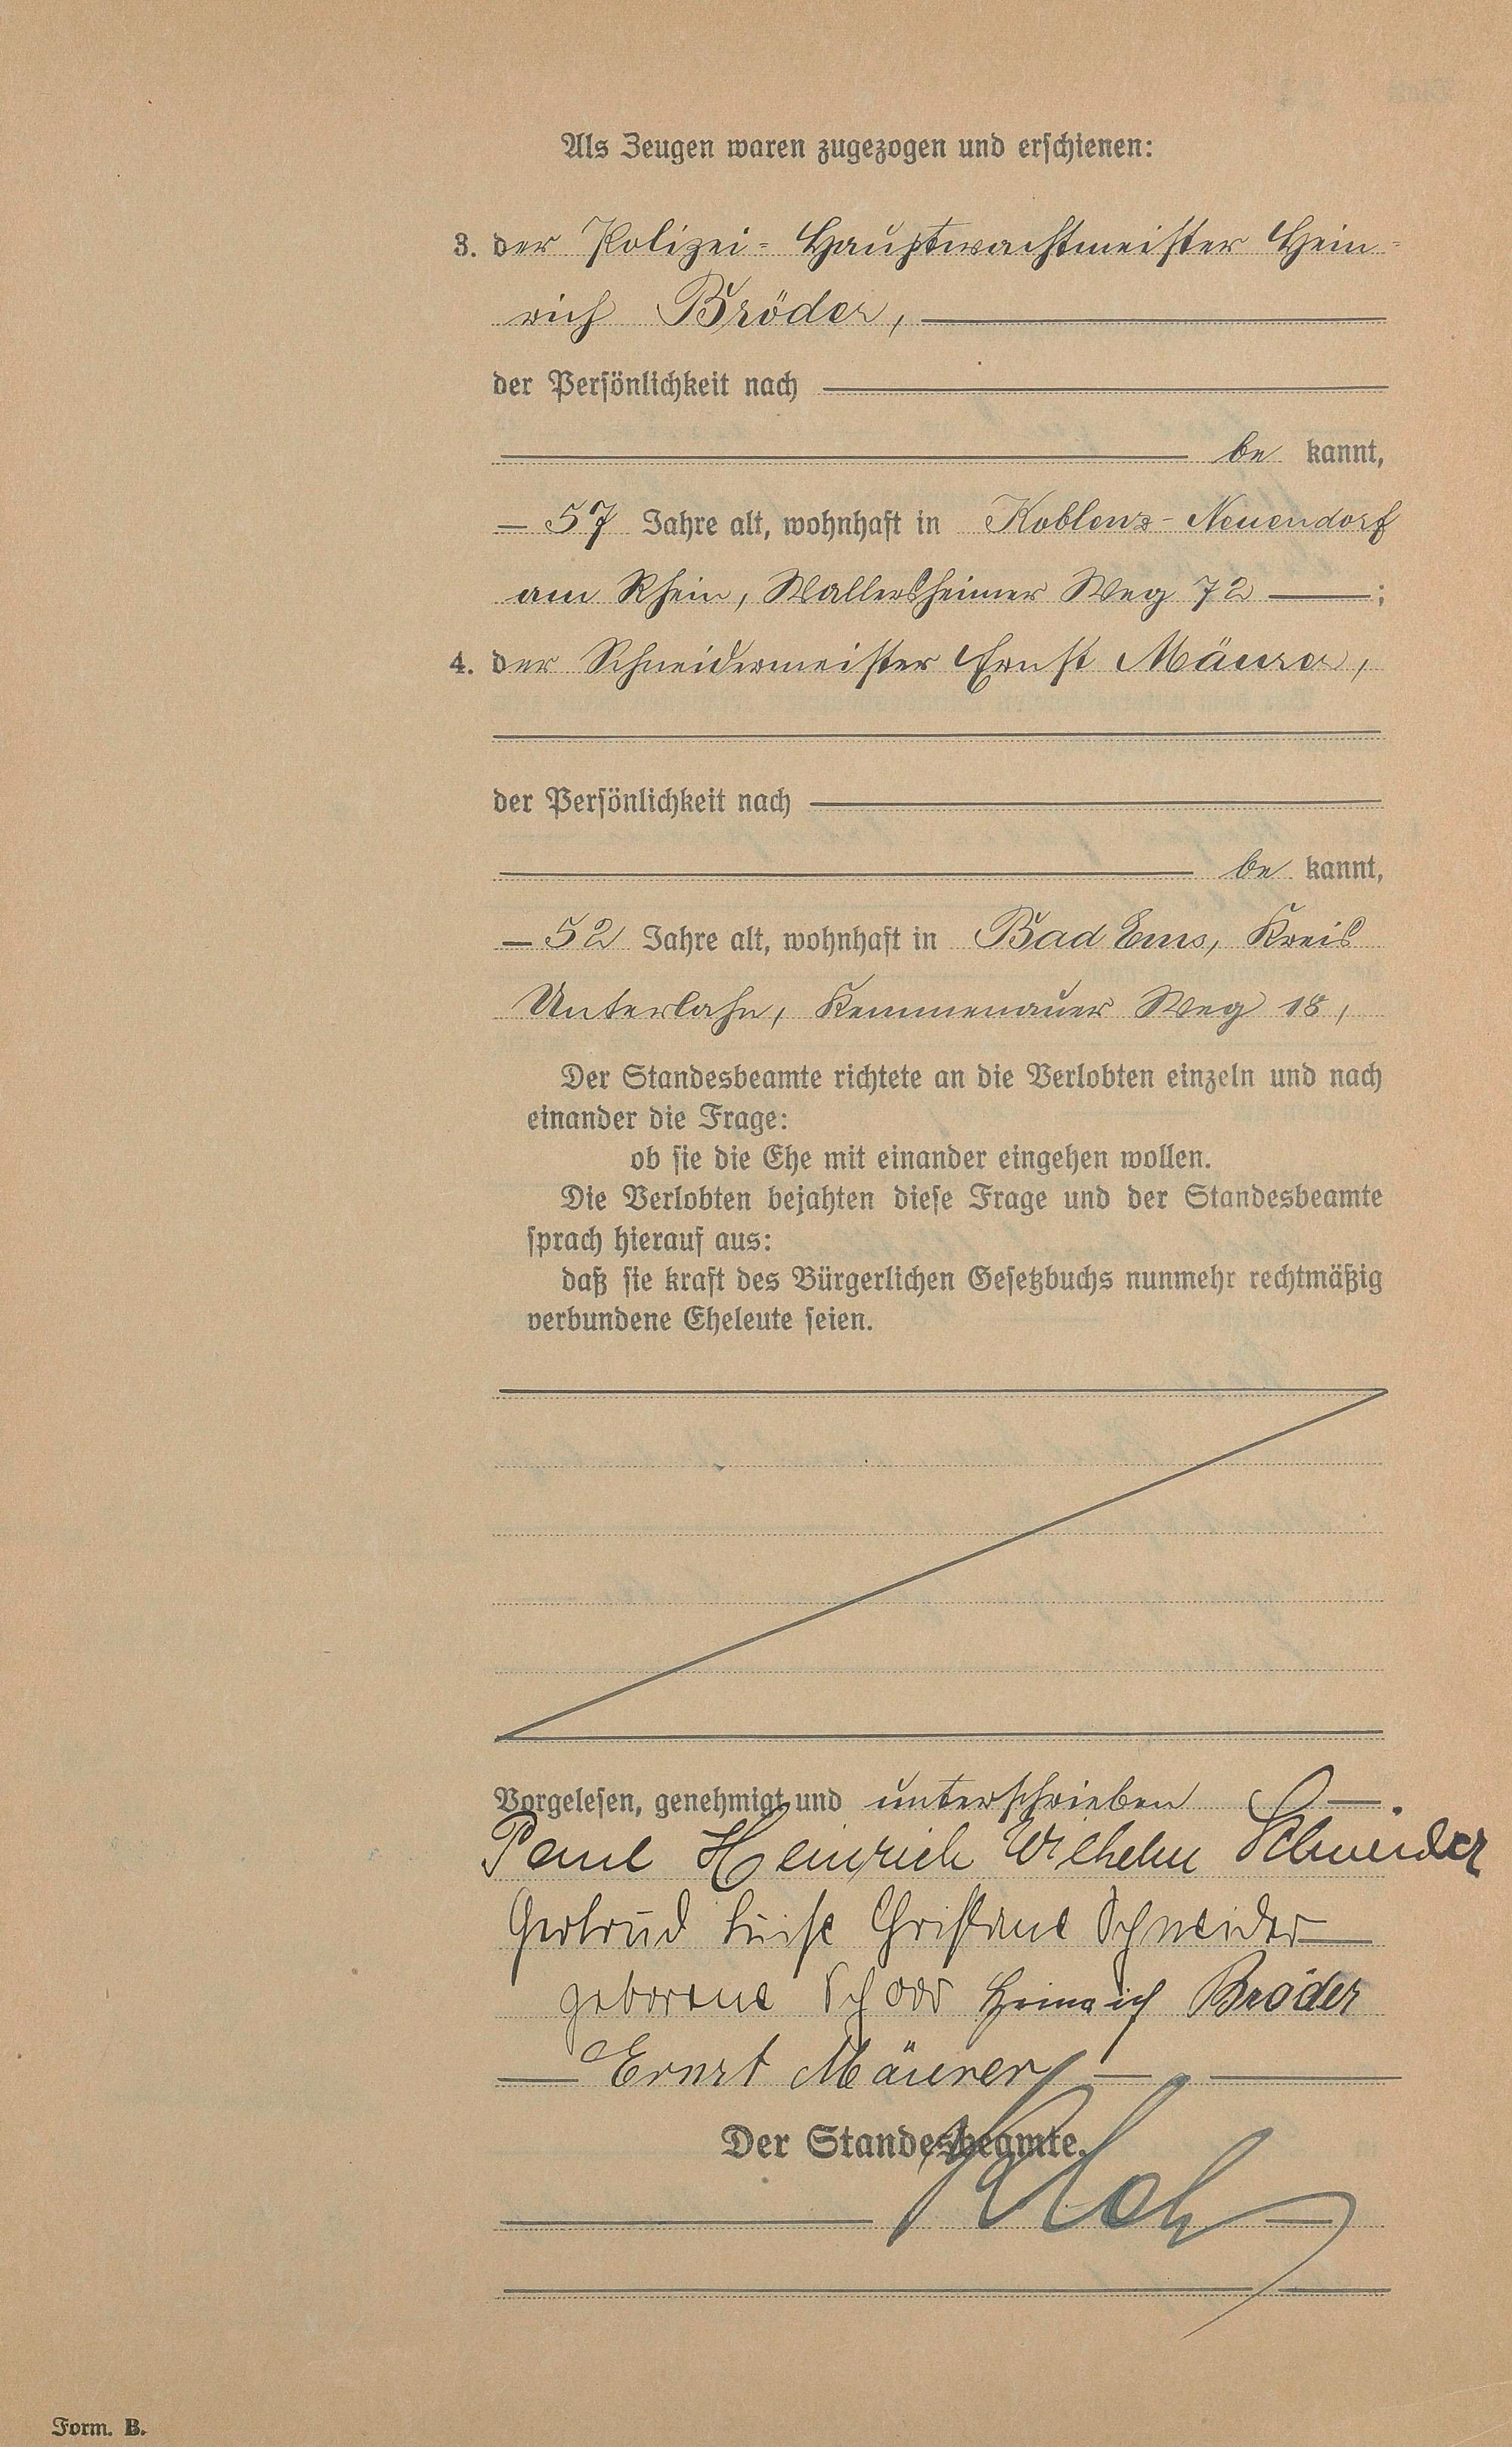 Als Zeugen waren zugezogen und erschienen:
3. der Polizei-Hauptwachtmeister Hein-
rich Bröder,
der Persönlichkeit nach
be kannt,
57 Jahre alt, wohnhaft in Koblenz-Neuendorf
am Rhein, Wallersheimer Weg 72 ;
4. der Schneidermeister Ernst Mäurer,
der Persönlichkeit nach
be kannt,
52 Jahre alt, wohnhaft in Bad Ems, Kreis
Unterlahn, Kemmenauer Weg 18,
Der Standesbeamte richtete an die Verlobten einzeln und nach
einander die Frage:
ob sie die Ehe mit einander eingehen wollen.
Die Verlobten bejahten diese Frage und der Standesbeamte
sprach hierauf aus:
daß sie kraft des Bürgerlichen Gesetzbuchs nunmehr rechtmäßig
verbundene Eheleute seien.
Vorgelesen, genehmigt und unterschrieben
Paul Heinrich Wilhelm Schneider
Gertrud Luise Christiane Schneider
geborene Heinrich Bröder
Ernst Mäurer
Der Standesbeamte.
Form. B.